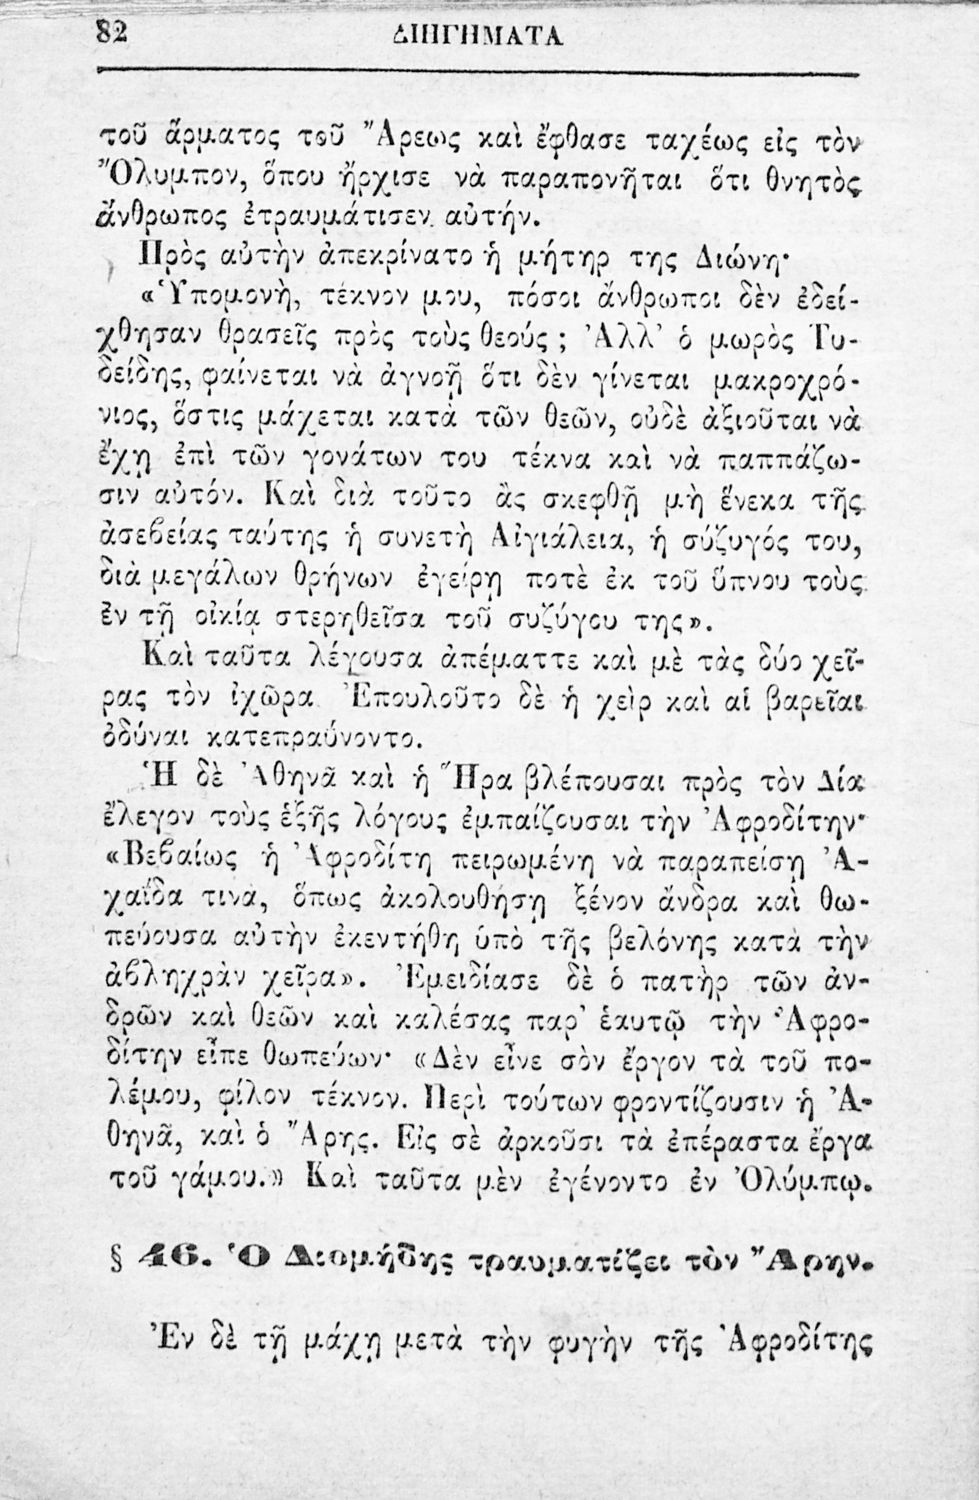 82
ΔΙΗΓΗΜΑΤΑ
τοῦ ἅρματος τοῦ Ἄρεως καὶ ἔφθασε ταχέως εἰς τὸν
Ὄλυμπον, ὅπου ἤρχισε νὰ παραπονῆται ὅτι θνητὸς
ἄνθρωπος ἐτραυμάτισεν αὐτήν.
Πρὸς αὐτὴν ἀπεκρίνατο ἡ μήτηρ της Διώνη·
«Ὑπομονὴ, τέκνον μου, πόσοι ἄνθρωποι δὲν ἐδεί-
χθησαν θρασεῖς πρὸς τοὺς θεούς ; Ἀλλ’ ὁ μωρὸς Τυ-
δείδης, φαίνεται νὰ ἀγνοῇ ὅτι δὲν γίνεται μακροχρό-
νιος, ὅστις μάχεται κατὰ τῶν θεῶν, οὐδὲ ἀξιοῦται νὰ
ἔχῃ ἐπὶ τῶν γονάτων του τέκνα καὶ νὰ παππάζω-
σιν αὐτόν. Καὶ διὰ τοῦτο ἂς σκεφθῇ μὴ ἕνεκα τῆς
ἀσεβείας ταύτης ἡ συνετὴ Αἰγιάλεια, ἡ σύζυγός του,
διὰ μεγάλων θρήνων ἐγείρῃ ποτὲ ἐκ τοῦ ὕπνου τοὺς
ἐν τῇ οἰκίᾳ στερηθεῖσα τοῦ συζύγου της».
Καὶ ταῦτα λέγουσα ἀπέματτε καὶ μὲ τὰς δύο χεῖ-
ρας τὸν ἰχῶρα Ἐπουλοῦτο δὲ ἡ χεὶρ καὶ αἱ βαρεῖαι
ὀδύναι κατεπραΰνοντο.
Ἡ δὲ Ἀθηνᾶ καὶ ἡ Ἥρα βλέπουσαι πρὸς τὸν Δία
ἔλεγον τοὺς ἑξῆς λόγους ἐμπαίζουσαι τὴν Ἀφροδίτην·
«Βεβαίως ἡ Ἀφροδίτη πειρωμένη νὰ παραπείσῃ Ἀ-
χαΐδα τινὰ, ὅπως ἀκολουθήσῃ ξένον ἄνδρα καὶ θω-
πεύουσα αὐτὴν ἐκεντήθη ὑπὸ τῆς βελόνης κατὰ τὴν
ἀβληχρὰν χεῖρα». Ἐμειδίασε δὲ ὁ πατὴρ τῶν ἀν-
δρῶν καὶ θεῶν καὶ καλέσας παρ’ ἑαυτῷ τὴν Ἀφρο-
δίτην εἶπε θωπεύων· «Δὲν εἶνε σὸν ἔργον τὰ τοῦ πο-
λέμου, φίλον τέκνον. Περὶ τούτων φροντίζουσιν ἡ Ἀ-
θηνᾶ, καὶ ὁ Ἄρης. Εἰς σὲ ἀρκοῦσι τὰ ἐπέραστα ἔργα
τοῦ γάμου.» Καὶ ταῦτα μὲν ἐγένοντο ἐν Ὀλύμπῳ.
§ 46. Ὁ Διομήδης τραυματίζει τὸν Ἄρην.
Ἐν δὲ τῇ μάχῃ μετὰ τὴν φυγὴν τῆς Ἀφροδίτης